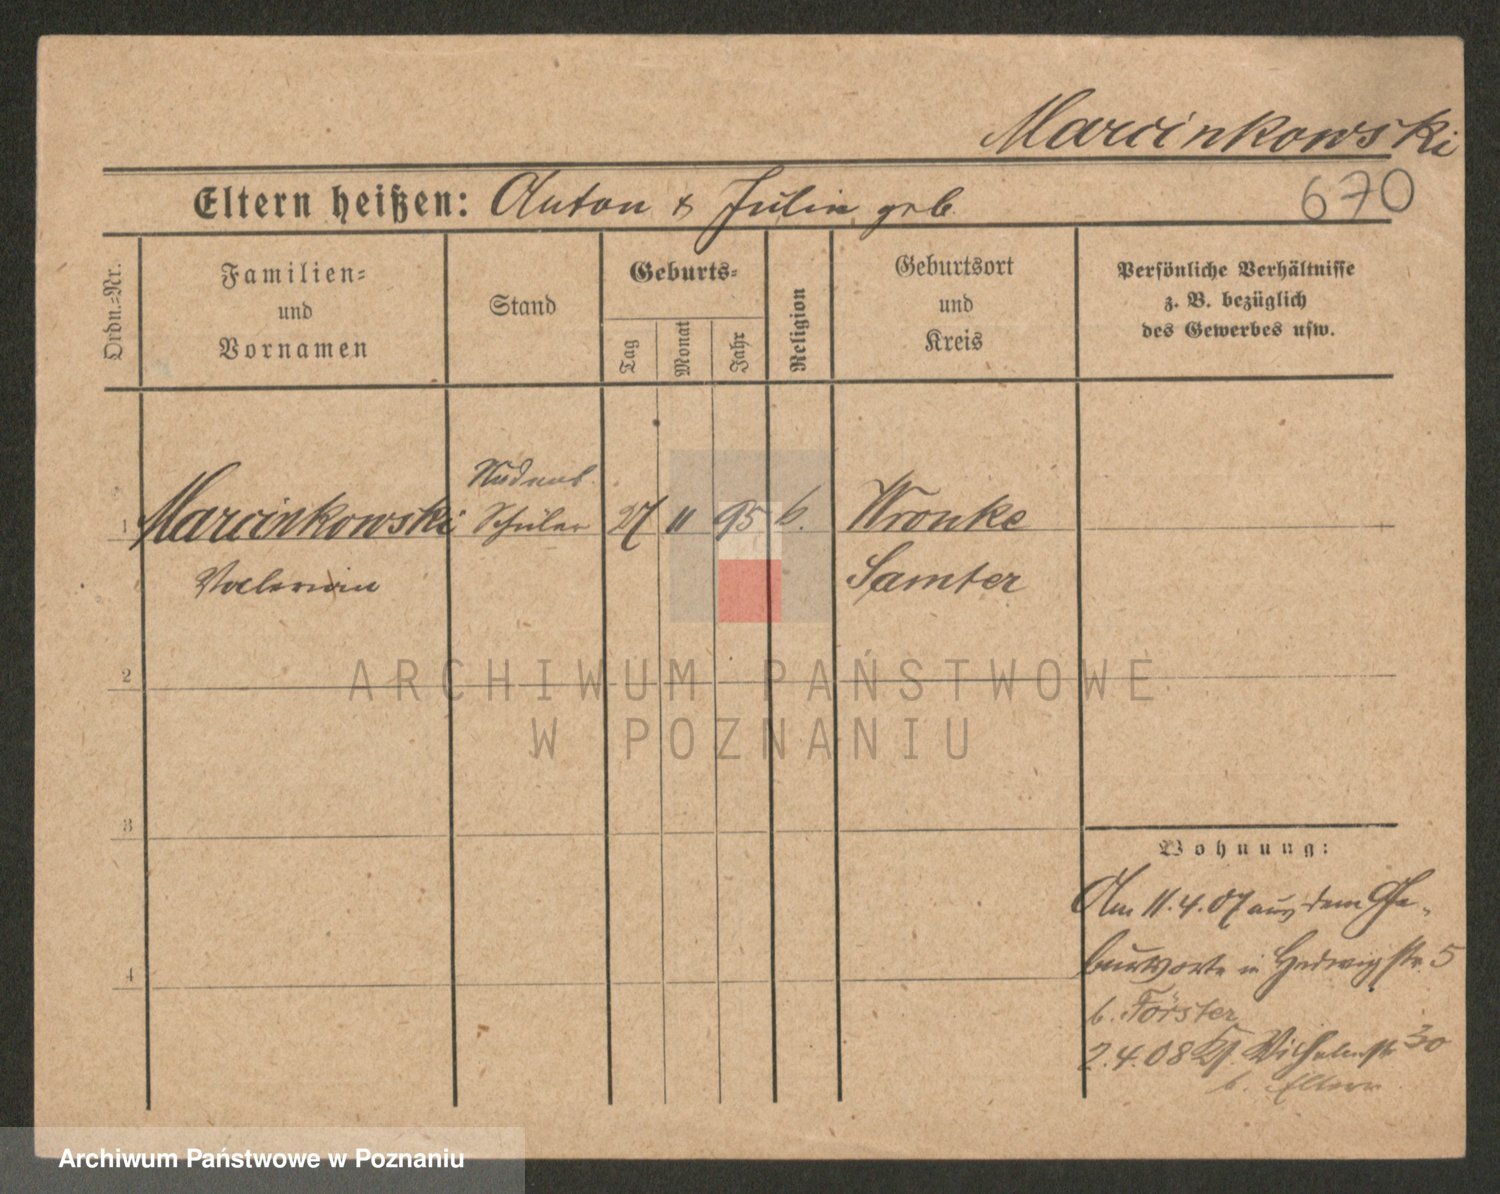 Marcinkowski
Eltern heißen: Anton & Julia geb.
670
Ordn.=Nr.
Familien=
und
Vornamen
Stand
Geburts=
Tag
Monat
Jahr
Religion
Geburtsort
und
Kreis
Persönliche Verhältnisse
z. B. bezüglich
des Gewerbes usw.
1
Marcinkowski
Valerian
Schüler
27
11
95
Wronke
Samter
2
3
4
Wohnung:
Am 11.4.07 aus dem
in Hedwigstr. 5
b. Förster
2.4.08 Kl. Wilhelmstr 30
b. Eltern
ARCHIWUM PAŃSTWOWE
W POZNANIU
Archiwum Państwowe w Poznaniu